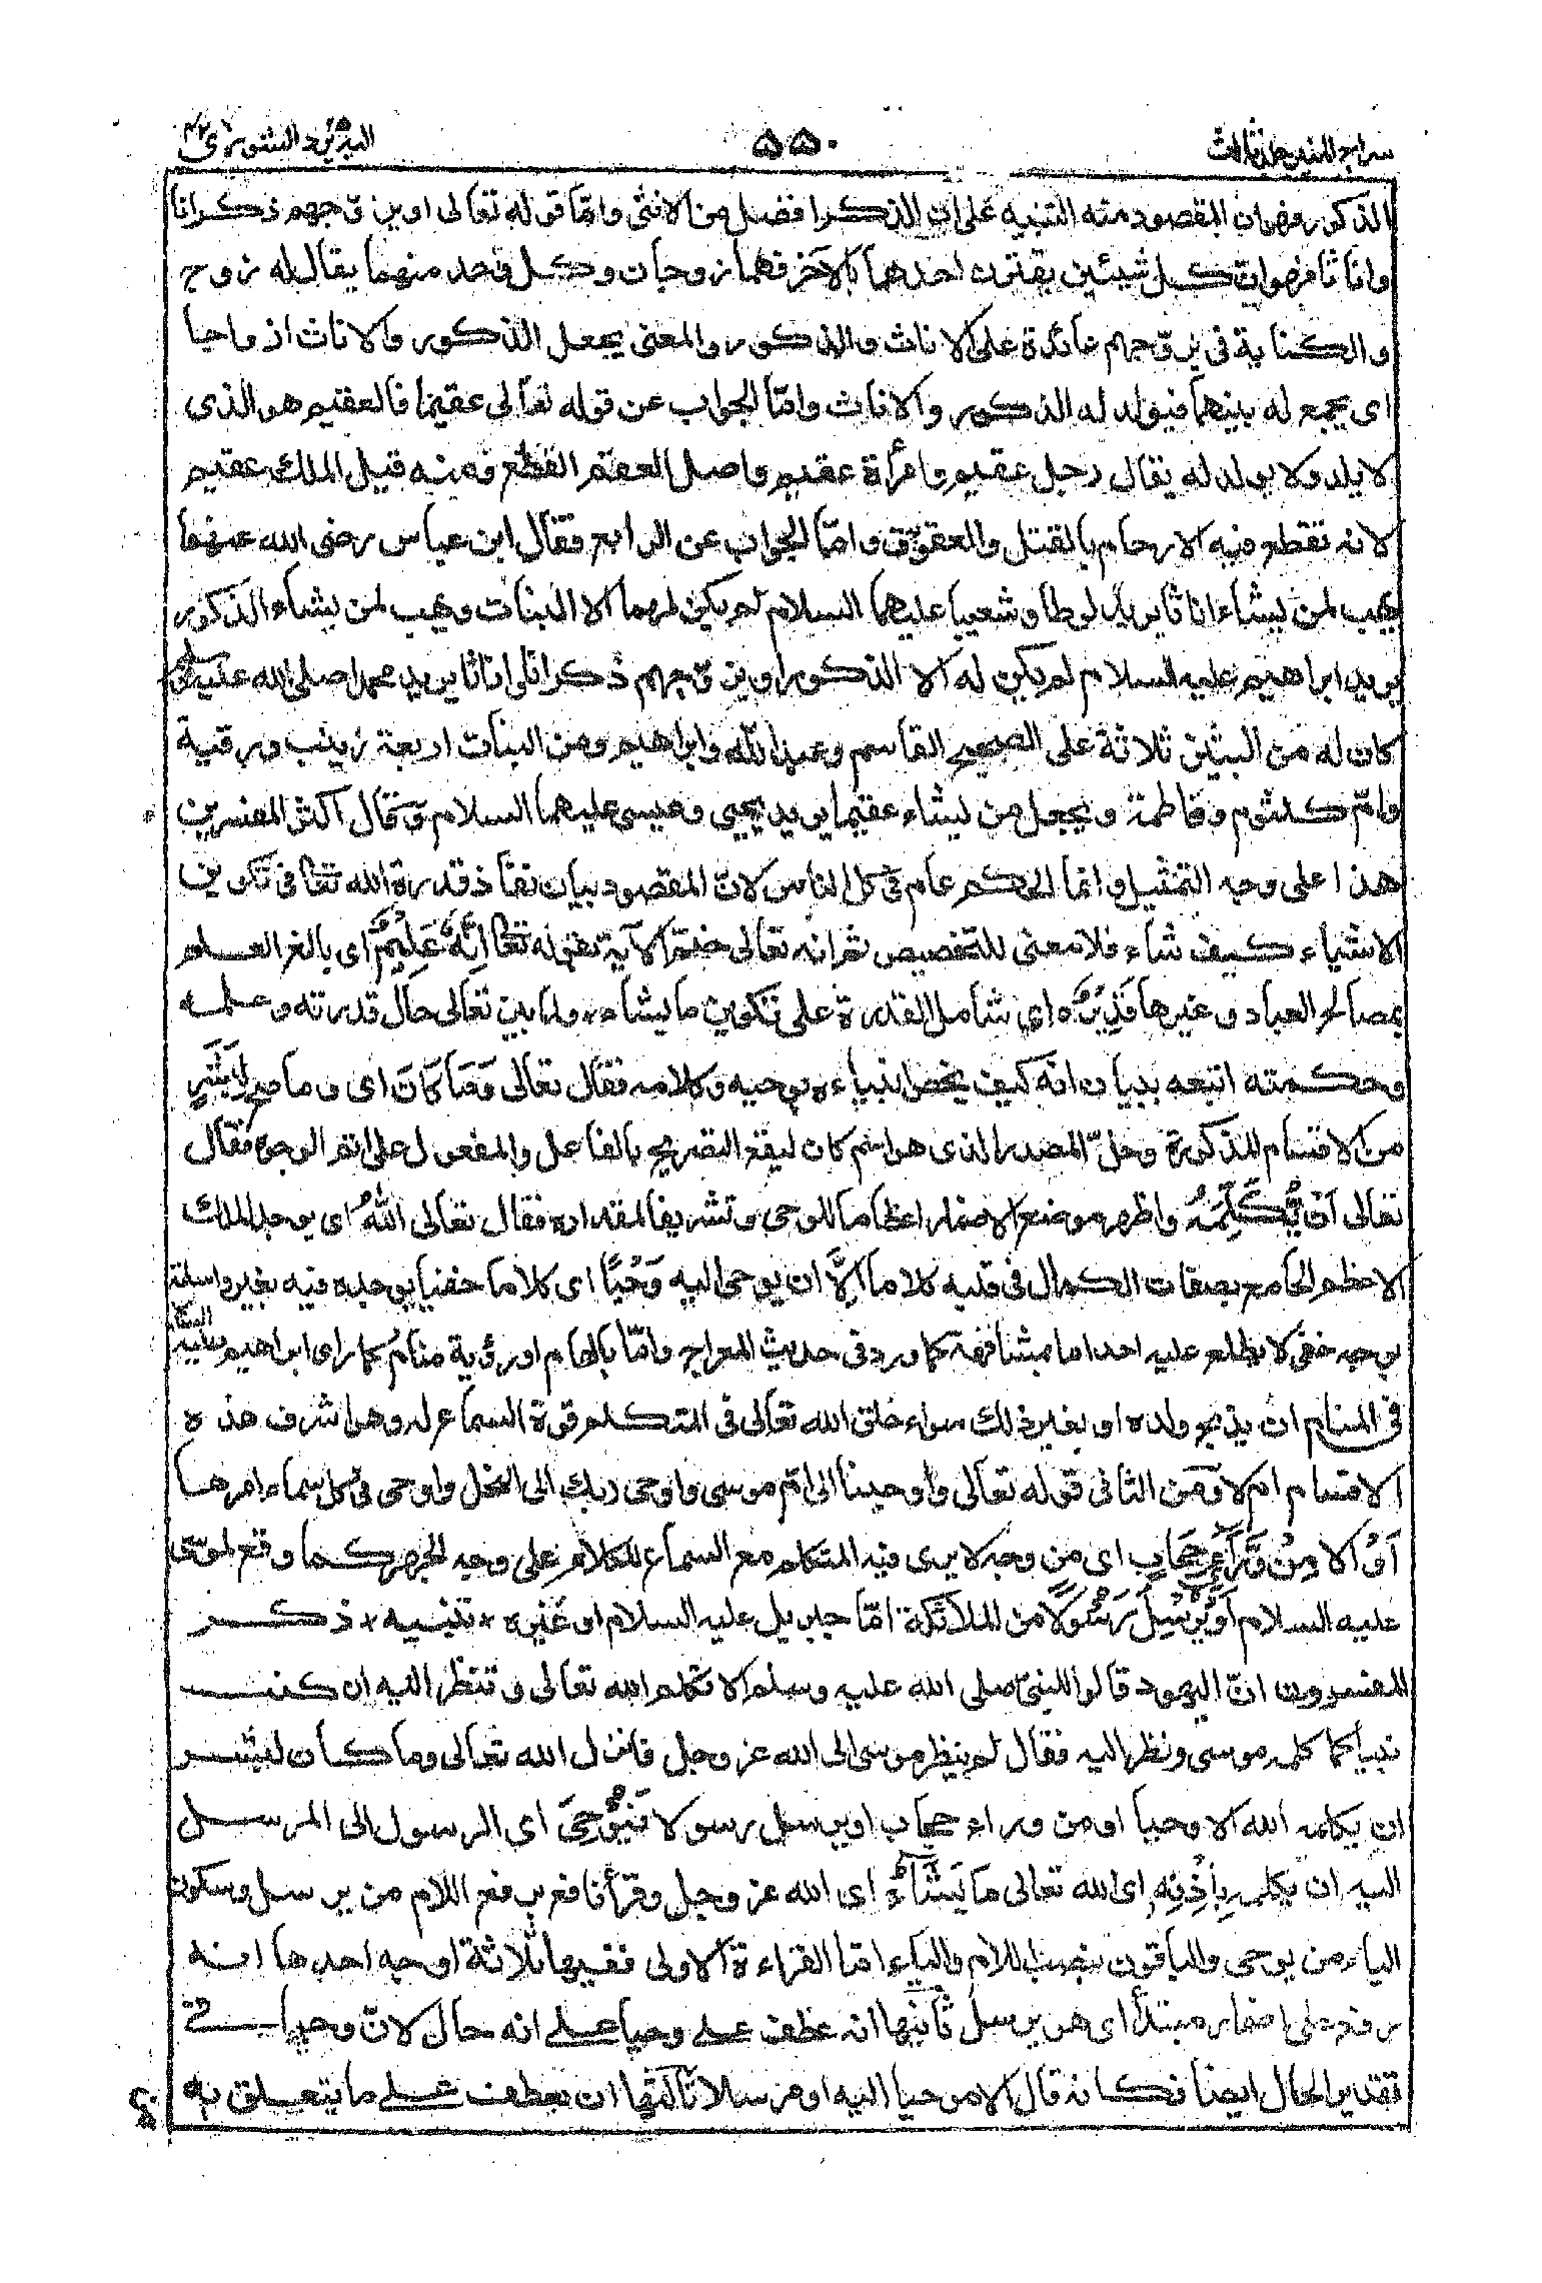 سراج المنير جلد ثالث ٥٥٠ اليه يرد الشورى ٤٢
الذكور فهو ان المقصود منه التنبيه على ان الذكر افضل من الانثى واما قوله تعالى او يزوجهم ذكرانا
واناثا فهو ان كل شيئين يقترن احدهما بالآخر فهما زوجان وكل واحد منهما يقال له زوج
والكناية فى يزوجهم عائدة على الاناث والذكور والمعنى يجعل الذكور والاناث ازواجا
اى يجمع له بينهما فيولد له الذكور والاناث واما الجواب عن قوله تعالى عقيما فالعقيم هو الذى
لا يلد ولا يولد له يقال رجل عقيم وامرأة عقيم واصل العقم القطع ومنه قيل الملك عقيم
لانه تقطع فيه الارحام بالقتل والعقوق واما الجواب عن الرابع فقال ابن عباس رضى الله عنهما
يهب لمن يشاء اناثا يريد لوطا وشعيبا عليهما السلام لم يكن لهما الا البنات ويهب لمن يشاء الذكور
يريد ابراهيم عليه السلام لم يكن له الا الذكور او يزوجهم ذكرانا واناثا يريد محمدا صلى الله عليه وسلم
كان له من البنين ثلاثة على الصحيح القاسم وعبد الله وابراهيم ومن البنات اربعة زينب ورقية
وام كلثوم وفاطمة ويجعل من يشاء عقيما يريد يحيى وعيسى عليهما السلام وقال اكثر المفسرين
هذا على وجه التمثيل وانما الحكم عام فى كل الناس لان المقصود بيان نفاذ قدرة الله تعا فى تكوين
الاشياء كيف شاء فلا معنى للتخصيص ثم انه تعالى ختم الآية بقوله تعا اِنَّهٗ عَلِيْمٌ اى بالغ العلم
بمصالح العباد وغيرها قَدِيْرٌ ه اى شامل القدرة على تكوين ما يشاء * ولما بين تعالى حال قدرته وعلمه
وحكمته اتبعه ببيان انه كيف يخص انبياءه بوحيه وكلامه فقال تعالى وَمَا كَانَ اى وما صح لِبَشَرٍ
من الاقسام المذكورة وحل المصدر الذى هو اسم كان ليقع التصريح بالفاعل والمفعول على اتم الوجوه فقال
تعالى اَنْ يُّكَلِّمَهُ واظهر موضع الاضمار اعظاما للوحى وتشريفا لمقداره فقال تعالى اللّٰهُ اى يوجد الملك
الاعظم الجامع بصفات الكمال فى قلبه كلاما اِلَّا ان يوحى اليه وَحْيًا اى كلاما خفيا يوجده فيه بغير واسطة
بوجه خفى لا يطلع عليه احد اما مشافهة كما ورد فى حديث المعراج واما بالهام او رؤية منام كما راى ابراهيم عليه السلام
فى المنام ان يذبح ولده او بغير ذلك سواء خلق الله تعالى فى المتكلم قوة السماع له وهو اشرف هذه
الاقسام ام لا ومن الثانى قوله تعالى واوحينا الى ام موسى واوحى ربك الى النحل واوحى فى كل سماء امرها
اَوْ الا مِنْ وَّرَآءِ حِجَابٍ اى من وجه لا يرى فيه المتكلم مع السماع للكلام على وجه الجهر كما وقع لموسى
عليه السلام اَوْ يُرْسِلَ رَسُوْلًا من الملائكة اما جبريل عليه السلام او غيره * تنبيه * ذكر
المفسرون ان اليهود قالوا للنبى صلى الله عليه وسلم الا تكلم الله تعالى وتنظر اليه ان كنت
نبيا كما كلمه موسى ونظر اليه فقال لم ينظر موسى الى الله عز وجل فانزل الله تعالى وما كان لبشر
ان يكلمه الله الا وحيا او من وراء حجاب او يرسل رسولا فَيُوْحِيَ اى الرسول الى المرسل
اليه ان يكلمه بِاِذْنِهٖ اى الله تعالى مَا يَشَآءُ اى الله عز وجل وقرأ نافع برفع اللام من يرسل وسكون
الياء من يوحى والباقون بنصب اللام والياء اما القراءة الاولى ففيها ثلاثة اوجه احدها انه
رفع على اضمار مبتدأ اى هو يرسل ثانيها انه عطف على وحيا على انه حال لان وحيا فى
تقدير الحال ايضا فكانه قال الا موحيا اليه او مرسلا ثالثها ان يعطف على ما يتعلق به